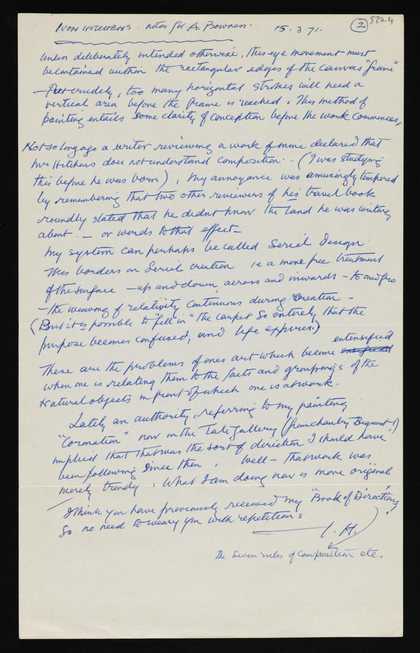 Ivon Hitchens - notes for A. Bowness. 15.3.71. 2
unless deliberately intended otherwise, this eye movement must
be contained within the rectangular edges of the canvas "frame"
- crudely, too many horizontal strokes will need a
vertical area before the frame is reached. This method of
painting entails some clarity of conception before the work commences,
Not so long ago a writer reviewing a work of mine declared that
Mr Hitchens does not understand composition - (I was studying
this before he was born), My annoyance was amusingly tempered
by remembering that two other reviewers of his travel book
roundly stated that he didnt know the land he was writing
about — or words to that effect —
My system can perhaps be called Serial Design
This borders on Serial creation is a more free treatment
of the surface - up and down, across and inwards - to and fro
- the weaving of relativity continuous during creation -
(But it is possible to "fill in" the carpet so entirely that the
purpose becomes confused, and life expires)
These are the problems of ones art which become intensified
when one is relating them to the facts and groupings of the
natural objects in front of which one is at work.
Lately an authority, referring to my painting
"Coronation" now in the Tate Gallery (from Chantrey Bequest)
implied that this was the sort of direction I should have
been following since then. Well - that work was
merely trendy. What I am doing now is more original
I think you have previously received my "Book of Directions"
So no need to weary you with repetition.
I. H.
The Seven rules of Composition etc.